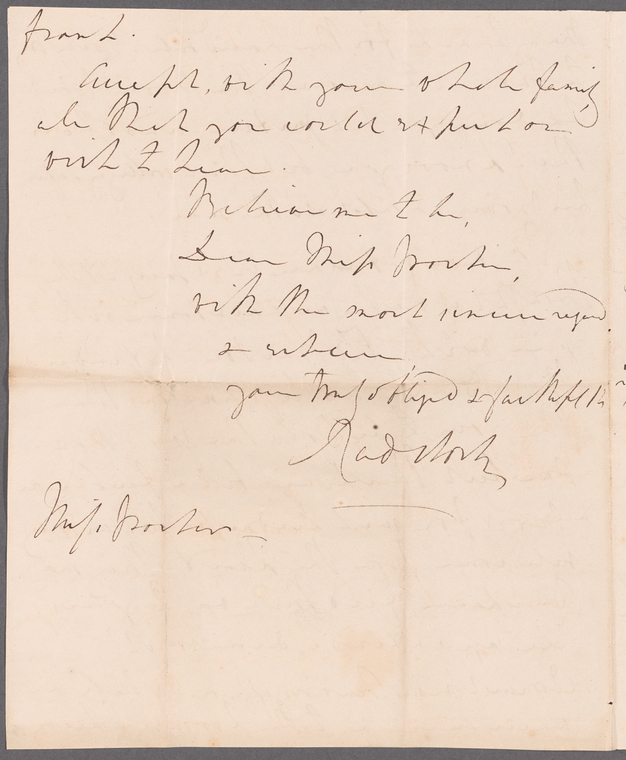 frank.
Accept, with your whole family,
all that you could expect or
wish to hear.
Believe me to be,
Dear Miss Porter,
with the most sincere regard
& esteem
your truly obliged & faithful
Radstock
Miss Porter —